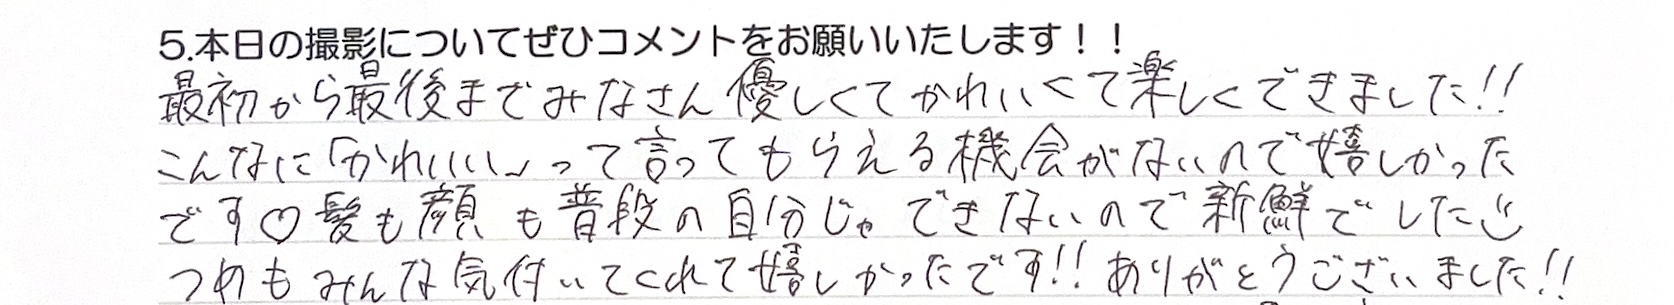 5.本日の撮影についてぜひコメントをお願いいたします！！
最初から最後までみなさん優しくてかわいくて楽しくできました!!
こんなに「かわいい」って言ってもらえる機会がないので嬉しかった
です♡髪も顔も普段の自分じゃできないので新鮮でした☺
つめもみんな気付いてくれて嬉しかったです!!ありがとうございました!!